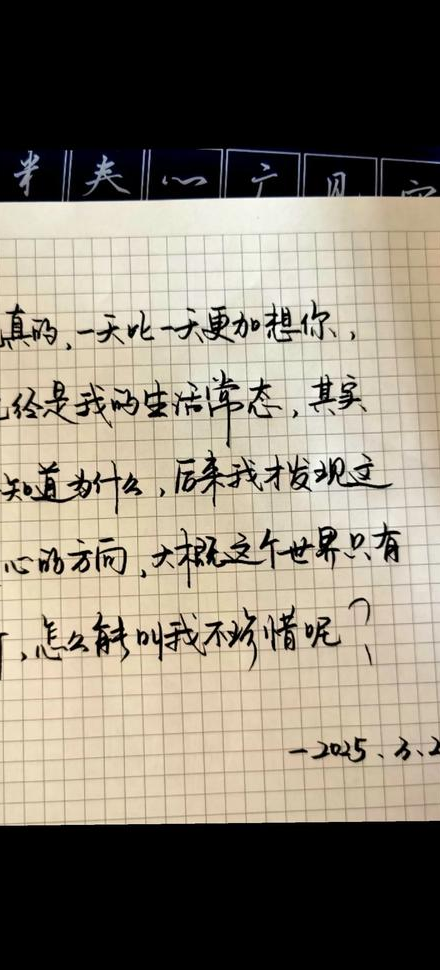 半 夹 心 广 见
真的，一天比一天更加想你，
经是我的生活常态，其实
知道为什么，后来我才发现这
心的方向，大概这个世界只有
，怎么能叫我不珍惜呢？
—2025.3.2